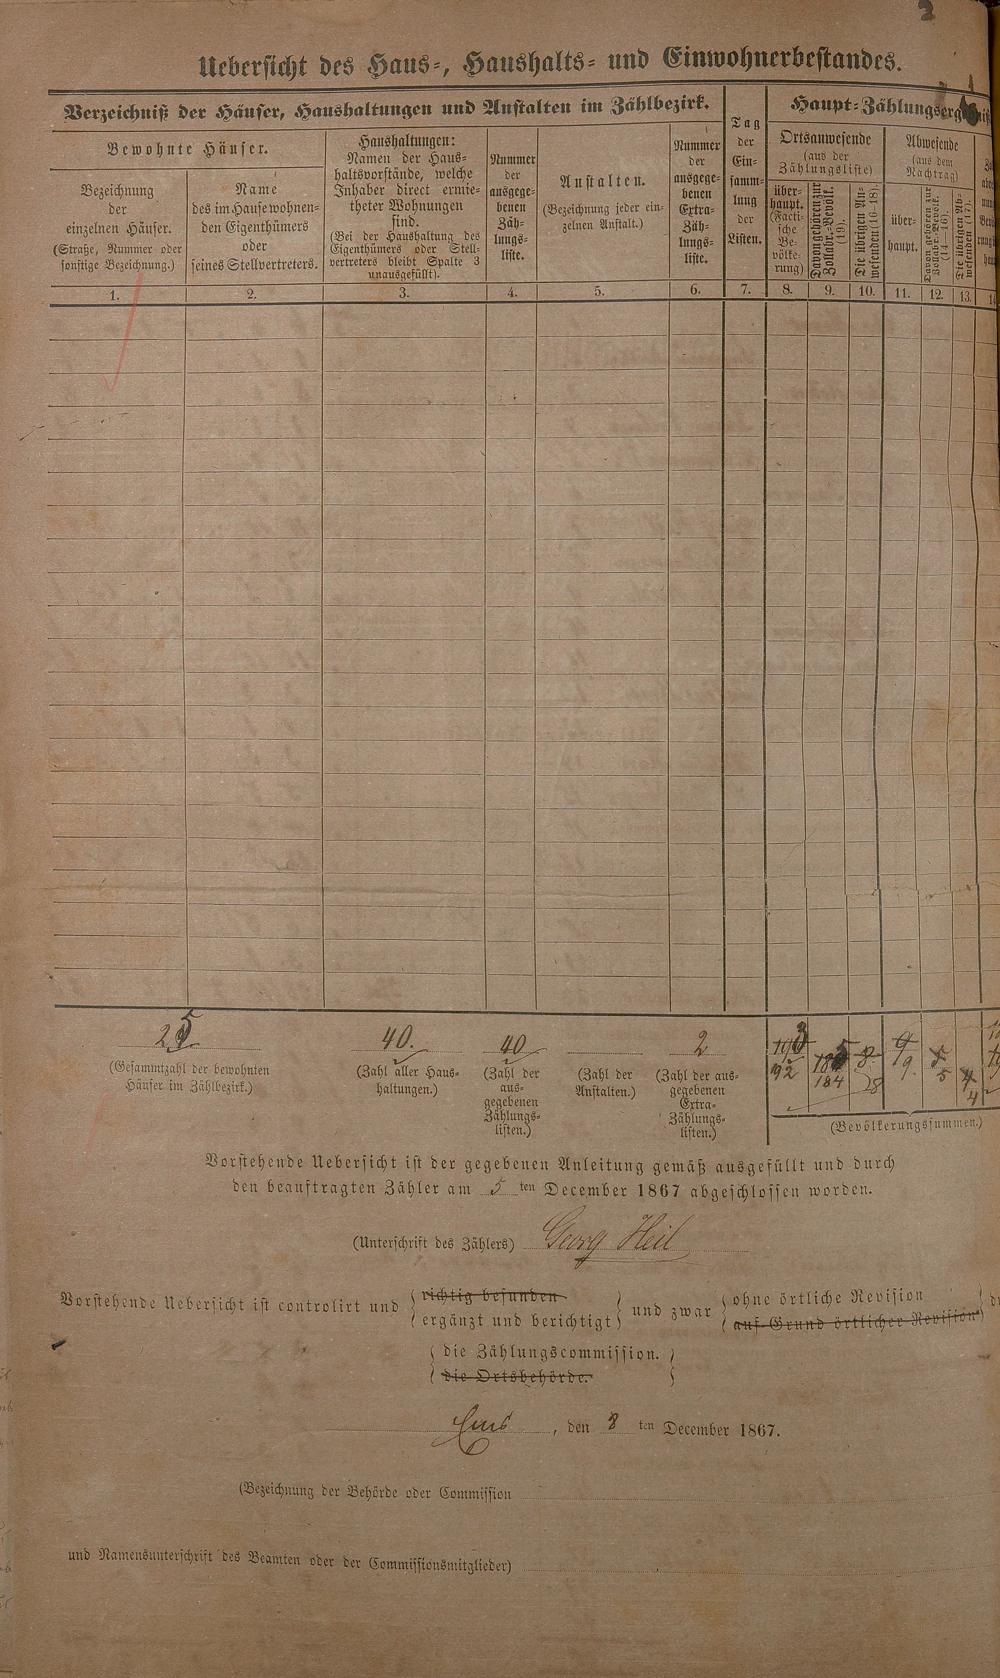 2
Uebersicht des Haus-, Haushalts- und Einwohnerbestandes.
Verzeichniß der Häuser, Haushaltungen und Anstalten im Zählbezirk.
Bewohnte Häuser.
Bezeichnung
der
einzelnen Häuser.
(Straße, Nummer oder
sonstige Bezeichnung.)
Name
des im Hause wohnen-
den Eigenthümers
oder
seines Stellvertreters.
Haushaltungen:
Namen der Haus-
haltsvorstände, welche
Inhaber direct ermie-
theter Wohnungen
sind.
(Bei der Haushaltung des
Eigenthümers oder Stell-
vertreters bleibt Spalte 3
unausgefüllt).
Nummer
der
ausgege-
benen
Zäh-
lungs-
liste.
Anstalten.
(Bezeichnung jeder ein-
zelnen Anstalt.)
Nummer
der
ausgege-
benen
Extra-
Zäh-
lungs-
liste.
Tag
der
Ein-
samm-
lung
der
Listen.
Haupt-Zählungserg
Ortsanwesende
(aus der
Zählungsliste)
über-
haupt.
(Facti-
sche
Be-
völke-
rung)
Davon gehören zur
Zollabr.-Bevölk.
(19).
Die übrigen An-
wesenden (16–18).
Abwesende
(aus dem
Nachtrag)
über-
haupt.
Davon gehören zur
Zollabr.-Bevölk.
(14–16).
Die übrigen Ab-
wesenden (17).
1. 2. 3. 4. 5. 6. 7. 8. 9. 10. 11. 12. 13.
25 40. 40 2
192 184 8 9. 5 4
(Gesammtzahl der bewohnten
Häuser im Zählbezirk.)
(Zahl aller Haus-
haltungen.)
(Zahl der
aus-
gegebenen
Zählungs-
listen.)
(Zahl der
Anstalten.)
(Zahl der aus-
gegebenen
Extra-
Zählungs-
listen.)
(Bevölkerungssummen.)
Vorstehende Uebersicht ist der gegebenen Anleitung gemäß ausgefüllt und durch
den beauftragten Zähler am 5 ten December 1867 abgeschlossen worden.
(Unterschrift des Zählers) Georg Heil
Vorstehende Uebersicht ist controlirt und richtig befunden ergänzt und berichtigt und zwar ohne örtliche Revision auf Grund örtlicher Revision
die Zählungscommission.
die Ortsbehörde.
Ems, den 8 ten December 1867.
(Bezeichnung der Behörde oder Commission
und Namensunterschrift des Beamten oder der Commissionsmitglieder)